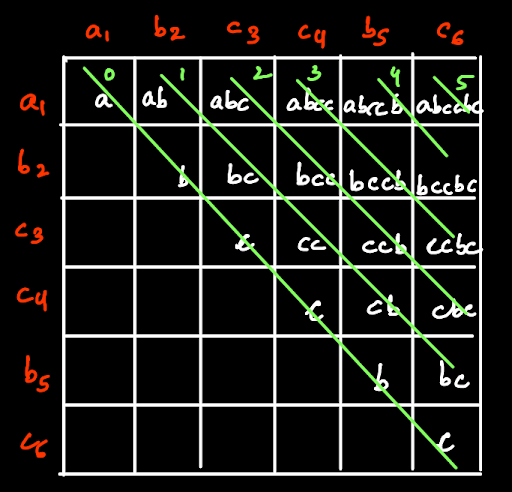 a1 b2 c3 c4 b5 c6
0 1 2 3 4 5
a1 a ab abc abcc abccb abccbc
b2 b bc bcc bccb bccbc
c3 c cc ccb ccbc
c4 c cb cbc
b5 b bc
c6 c